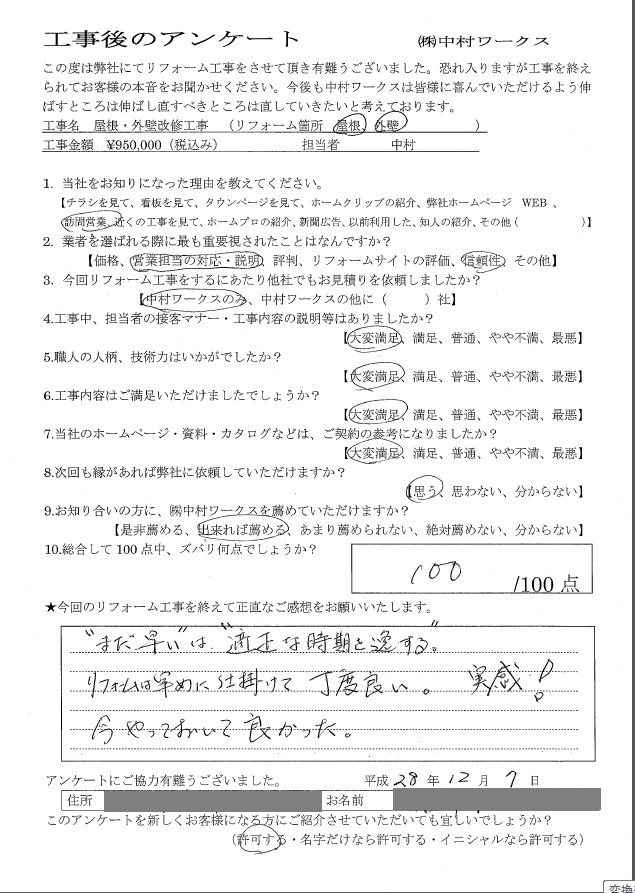 工事後のアンケート　㈱中村ワークス
この度は弊社にてリフォーム工事をさせて頂き有難うございました。恐れ入りますが工事を終え
られてお客様の本音をお聞かせください。今後も中村ワークスは皆様に喜んでいただけるよう伸
ばすところは伸ばし直すべきところは直していきたいと考えております。
工事名　屋根・外壁改修工事　（リフォーム箇所　屋根、外壁　）
工事金額　¥950,000（税込み）　担当者　中村
1．当社をお知りになった理由を教えてください。
【チラシを見て、看板を見て、タウンページを見て、ホームクリップの紹介、弊社ホームページ　WEB 、
訪問営業、近くの工事を見て、ホームプロの紹介、新聞広告、以前利用した、知人の紹介、その他（　）】
2．業者を選ばれる際に最も重要視されたことはなんですか？
【価格、営業担当の対応・説明、評判、リフォームサイトの評価、信頼性、その他】
3．今回リフォーム工事をするにあたり他社でもお見積りを依頼しましたか？
【中村ワークスのみ、中村ワークスの他に（　）社】
4.工事中、担当者の接客マナー・工事内容の説明等はありましたか？
【大変満足、満足、普通、やや不満、最悪】
5.職人の人柄、技術力はいかがでしたか？
【大変満足、満足、普通、やや不満、最悪】
6.工事内容はご満足いただけましたでしょうか？
【大変満足、満足、普通、やや不満、最悪】
7.当社のホームページ・資料・カタログなどは、ご契約の参考になりましたか？
【大変満足、満足、普通、やや不満、最悪】
8.次回も縁があれば弊社に依頼していただけますか？
【思う、思わない、分からない】
9.お知り合いの方に、㈱中村ワークスを薦めていただけますか？
【是非薦める、出来れば薦める、あまり薦められない、絶対薦めない、分からない】
10.総合して 100 点中、ズバリ何点でしょうか？
100 /100 点
★今回のリフォーム工事を終えて正直なご感想をお願いいたします。
"まだ早い"は"適正な時期を逸する。"
リフォームは早めに仕掛けて丁度良い。実感！
今やっておいて良かった。
アンケートにご協力有難うございました。　平成 28 年 12 月 7 日
住所　お名前
このアンケートを新しくお客様になる方にご紹介させていただいても宜しいでしょうか？
（許可する・名字だけなら許可する・イニシャルなら許可する）
変換